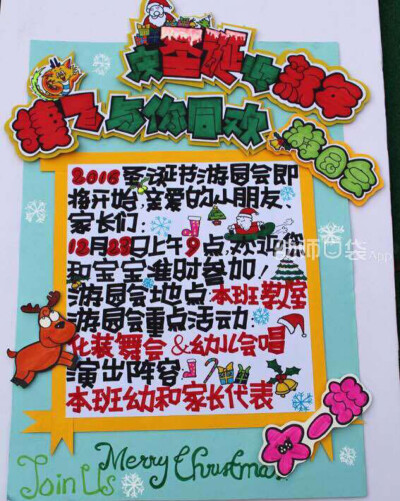 庆圣诞与新年
津飞与你同欢
游园会
2016圣诞节游园会即
将开始,亲爱的小朋友、
家长们:
12月23日上午9点,欢迎你
和宝宝准时参加!
游园会地点 本班教室
游园会重点活动:
化装舞会&幼儿会唱
演出阵容
本班幼和家长代表
Join Us Merry Christmas!
幼师口袋App